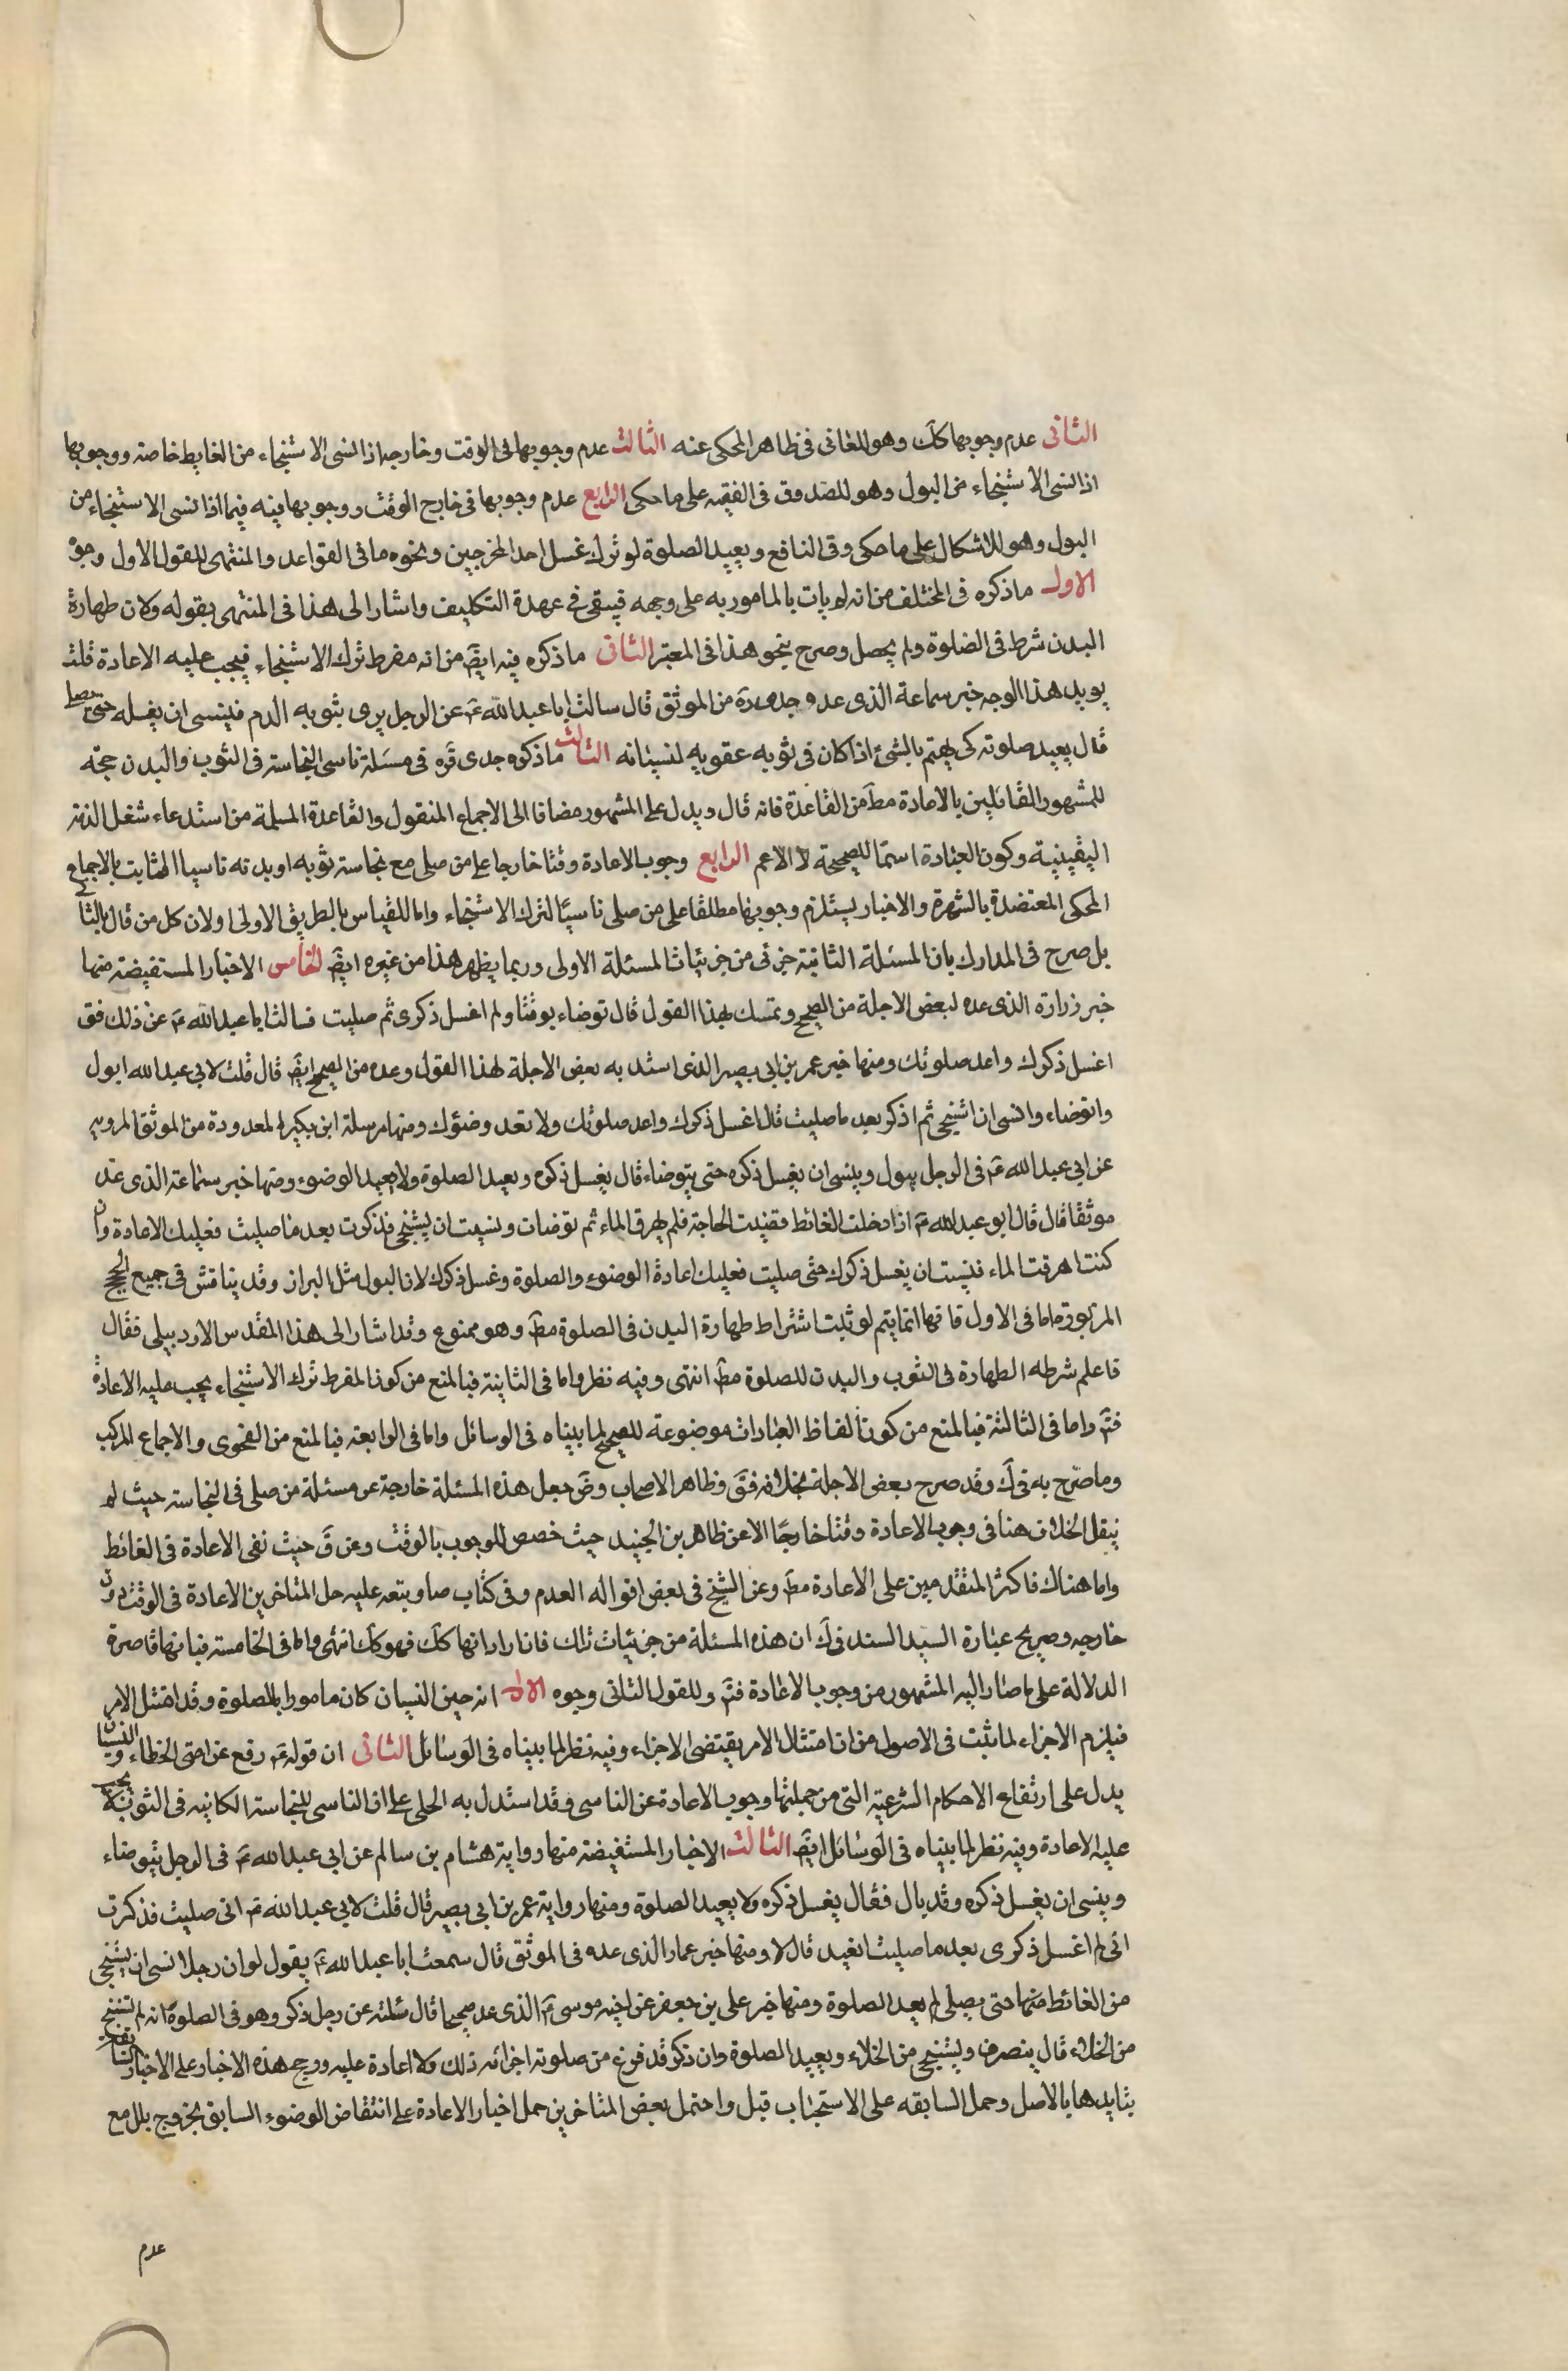 الثانى عدم وجوبها كك وهو للعانى فى ظاهر المحكى عنه الثالث عدم وجوبها فى الوقت وخارجه اذا نسى الاستنجاء من الغايط خاصة ووجوبها
اذا نسى الاستنجاء من البول وهو للصدوق فى الفقيه على ما حكى الرابع عدم وجوبها فى خارج الوقت ووجوبها فيه فيما اذا نسى الاستنجاء من
البول وهو للاشكال على ما حكى وفى النافع ويعيد الصلوة لو ترك غسل احد المخرجين ونحوه ما فى القواعد والمنتهى للقول الاول وجوه
الاول ما ذكره فى المختلف من انه لم يات بالمامور به على وجهه فيبقى فى عهدة التكليف واشار الى هذا فى المنتهى بقوله ولان طهارة
البدن شرط فى الصلوة ولم يحصل وصرح بنحو هذا فى المعتبر الثانى ما ذكره فيه ايضً من انه مفرط بترك الاستنجاء فيجب عليه الاعادة قلت
يويد هذا الوجه خبر سماعة الذى عده جدى ره من الموثق قال سالت ابا عبد الله ع عن الرجل يرى بثوبه الدم فينسى ان يغسله حتى يصلى
قال يعيد صلوته كى يهتم بالشئ اذا كان فى ثوبه عقوبه لنسيانه الثالث ما ذكره جدى قره فى مسئلة ناسى النجاسة فى الثوب والبدن حجة
للمشهور القائلين بالاعادة مط من القاعدة فانه قال ويدل على المشهور مضافا الى الاجماع المنقول والقاعدة المسلمة من استدعاء شغل الذمة
اليقينية وكون العبادة اسمًا للصحيحة لا الاعم الرابع وجوب الاعادة وقتا خارجا على من صلى مع نجاسة ثوبه او بدنه ناسيا الثابت بالاجماع
المحكى المعتضدة بالشهرة والاخبار يستلزم وجوبها مطلقا على من صلى ناسيًا لترك الاستنجاء واما للقياس بالطريق الاولى او لان كل من قال بالثانى
بل صرح فى المدارك بان المسئلة الثانية جزئى من جزئيات المسئلة الاولى وربما يظهر هذا من غيره ايضً الخامس الاخبار المستفيضة منها
خبر زرارة الذى عده لبعض الاجلة من الصحيح وتمسك لهذا القول قال توضاء يومًا ولم اغسل ذكرى ثم صليت فسالت ابا عبد الله ع عن ذلك فق
اغسل ذكرك واعد صلوتك ومنها خبر عمر بن ابى بصير الذى استد به بعض الاجلة لهذا القول وعده من الصحيح ايضً قال قلت لابى عبد الله ابول
واتوضاء وانسى ان استنجى ثم اذكر بعد ما صليت قال اغسل ذكرك واعد صلوتك ولا تعد وضوئك ومنها مرسلة ابن بكير المعدودة من الموثق المرويه
عن ابى عبد الله ع فى الرجل يبول وينسى ان يغسل ذكره حتى يتوضاء قال يغسل ذكره ويعيد الصلوة ولا يعيد الوضوء ومنها خبر سماعة الذى عد
موثقا قال قال ابو عبد الله ع اذا دخلت الغائط فقضيت الحاجة فلم تهرق الماء ثم توضات ونسيت ان يستنجى فذكرت بعد ما صليت فعليك الاعادة وان
كنت اهرقت الماء فنسيت ان يغسل ذكرك حتى صليت فعليك اعادة الوضوء والصلوة وغسل ذكرك لان البول مثل البراز وقد يناقش فى جميع الحجج
المزبورة اما فى الاول فانها انما يتم لو ثبت اشتراط طهارة البدن فى الصلوة مط وهو ممنوع وقد اشار الى هذا المقدس الاردبيلى فقال
فاعلم شرطه الطهارة فى الثوب والبدن للصلوة مط انتهى وفيه نظر واما فى الثانية فبالمنع من كون المفرط بترك الاستنجاء يجب عليه الاعادة
فتم واما فى الثالثة فبالمنع من كون الفاظ العبادات موضوعة للصحيح لما بيناه فى الوسائل واما فى الرابعة فبالمنع من الفحوى والاجماع المركب
وما صرّح به فى ك وقد صرح بعض الاجلة بخلافه فق وظاهر الاصحاب وض جعل هذه المسئلة خارجة عن مسئلة من صلى فى النجاسة حيث لم
ينقل الخلاف هنا فى وجوب الاعادة وقتا خارجًا الا عن ظاهر بن الجنيد حيث خصص للوجوب بالوقت وعن ق حيث نفى الاعادة فى الغائط
واما هناك فاكثر المتقدمين على الاعادة مط وعن الشيخ فى بعض اقواله العدم وفى كتاب صا وبتعه عليه جل المتاخرين الاعادة فى الوقت دون
خارجه وصريح عبارة السيد السند فى ك ان هذه المسئلة من جزئيات تلك فان اراد انها كك فهو كك انتهى واما فى الخامسة فبانها قاصرة
الدلالة على ما صار اليه المشهور من وجوب الاعادة فتم وللقول الثانى وجوه الاول انه حين النسيان كان مامورا بالصلوة وقد امتثل الامر
فيلزم الاجزاء لما ثبت فى الاصول من ان امتثال الامر يقتضى الاجزاء وفيه نظر لما بيناه فى الوسائل الثانى ان قوله ع رفع عن امتى الخطاء والنسيان
يدل على ارتفاع الاحكام الشرعية التى من جملتها وجوب الاعادة عن الناسى وقد استدل به الحلى على ان الناسى للنجاسة الكاينه فى الثوب لا يجب
عليه الاعادة وفيه نظر لما بيناه فى الوسائل ايضً الثالث الاخبار المستفيضة منها رواية هشام بن سالم عن ابى عبد الله ع فى الرجل يتوضاء
وينسى ان يغسل ذكره وقد بال فقال يغسل ذكره ولا يعيد الصلوة ومنها رواية عمر بن ابى بصير قال قلت لابى عبد الله ع انى صليت فذكرت
انى لم اغسل ذكرى بعد ما صليت افيد قال لا ومنها خبر عمار الذى عده فى الموثق قال سمعت ابا عبد الله ع يقول لو ان رجلا نسى ان يستنجى
من الغائط منها حتى يصلى لم يعد الصلوة ومنها خبر على بن جعفر عن اخيه موسى ع الذى عد صحيحا قال سئلته عن رجل ذكر وهو فى الصلوة انه لم يستنج
من الخلاء قال ينصرف ويستنجى من الخلاء ويعيد الصلوة وان ذكر وقد فرغ من صلوته اجزائه ذلك ولا اعادة عليه ورجح هذه الاخبار على الاخبار السابقه
بتايدها بالاصل وحمل السابقه على الاستحباب قيل واحتمل بعض المتاخرين حمل اخبار الاعادة على انتقاض الوضوء السابق بخروج بلل مع
عدم